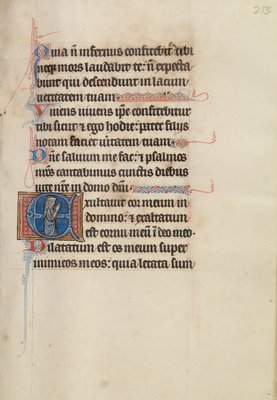 213
Quia ñ infernus confitebit̃ tibi
neq; mors laudabit te: ñ expecta
bunt qui descendunt in lacum
ueritatem tuam.
Viuens uiuens ip̃e confitebitur
tibi sicut & ego hodie: pater filijs
notam faciet ũitatem tuam.
Dñe saluum me fac: & psalmos
nr̃os cantabimus cunctis diebus
uite nr̃e in domo dñi.
Exultauit cor meum in
domino: & exaltatum
est cornu meũ ĩ deo meo.
Dilatatum est os meum super
inimicos meos: quia letata sum